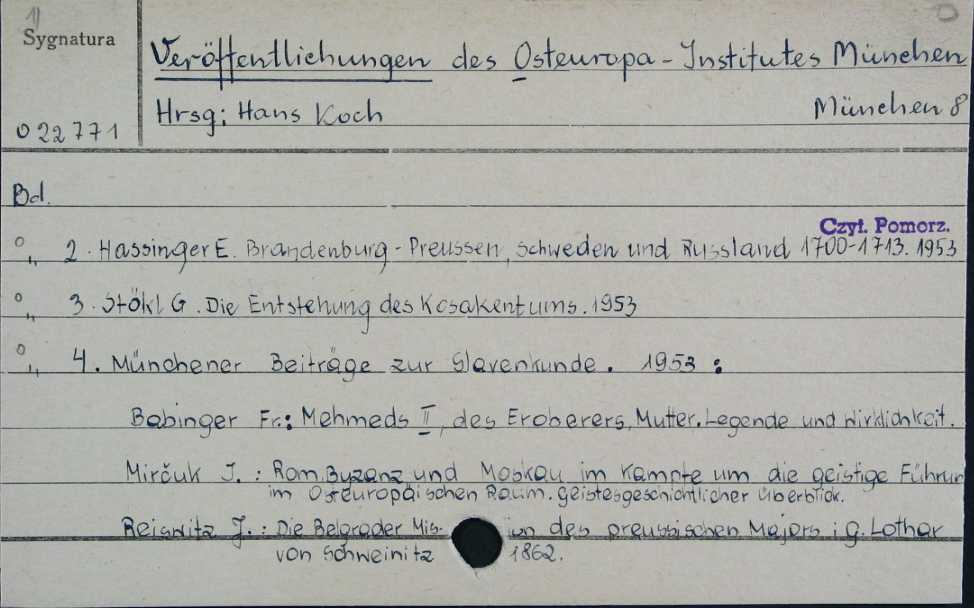 1)
Sygnatura
Veröffentlichungen des Osteuropa-Institutes München
Hrsg: Hans Koch München 8
022771
Bd.
Czyt. Pomorz.
° „ 2. Hassinger E. Brandenburg-Preussen, Schweden und Russland 1700-1713. 1953
° „ 3. Stökl G. Die Entstehung des Kosakentums. 1953
° „ 4. Münchener Beiträge zur Slavenkunde. 1953:
Babinger Fr.: Mehmeds II, des Eroberers, Mutter. Legende und Wirklichkeit.
Mirčuk J.: Rom, Byzanz und Moskau im Kampfe um die geistige Führun
im Osteuropäischen Raum. Geistesgeschichtlicher Überblick.
Reiswitz J.: Die Belgrader Mis- ion des preussischen Majors i g. Lothar
von Schweinitz 1862.